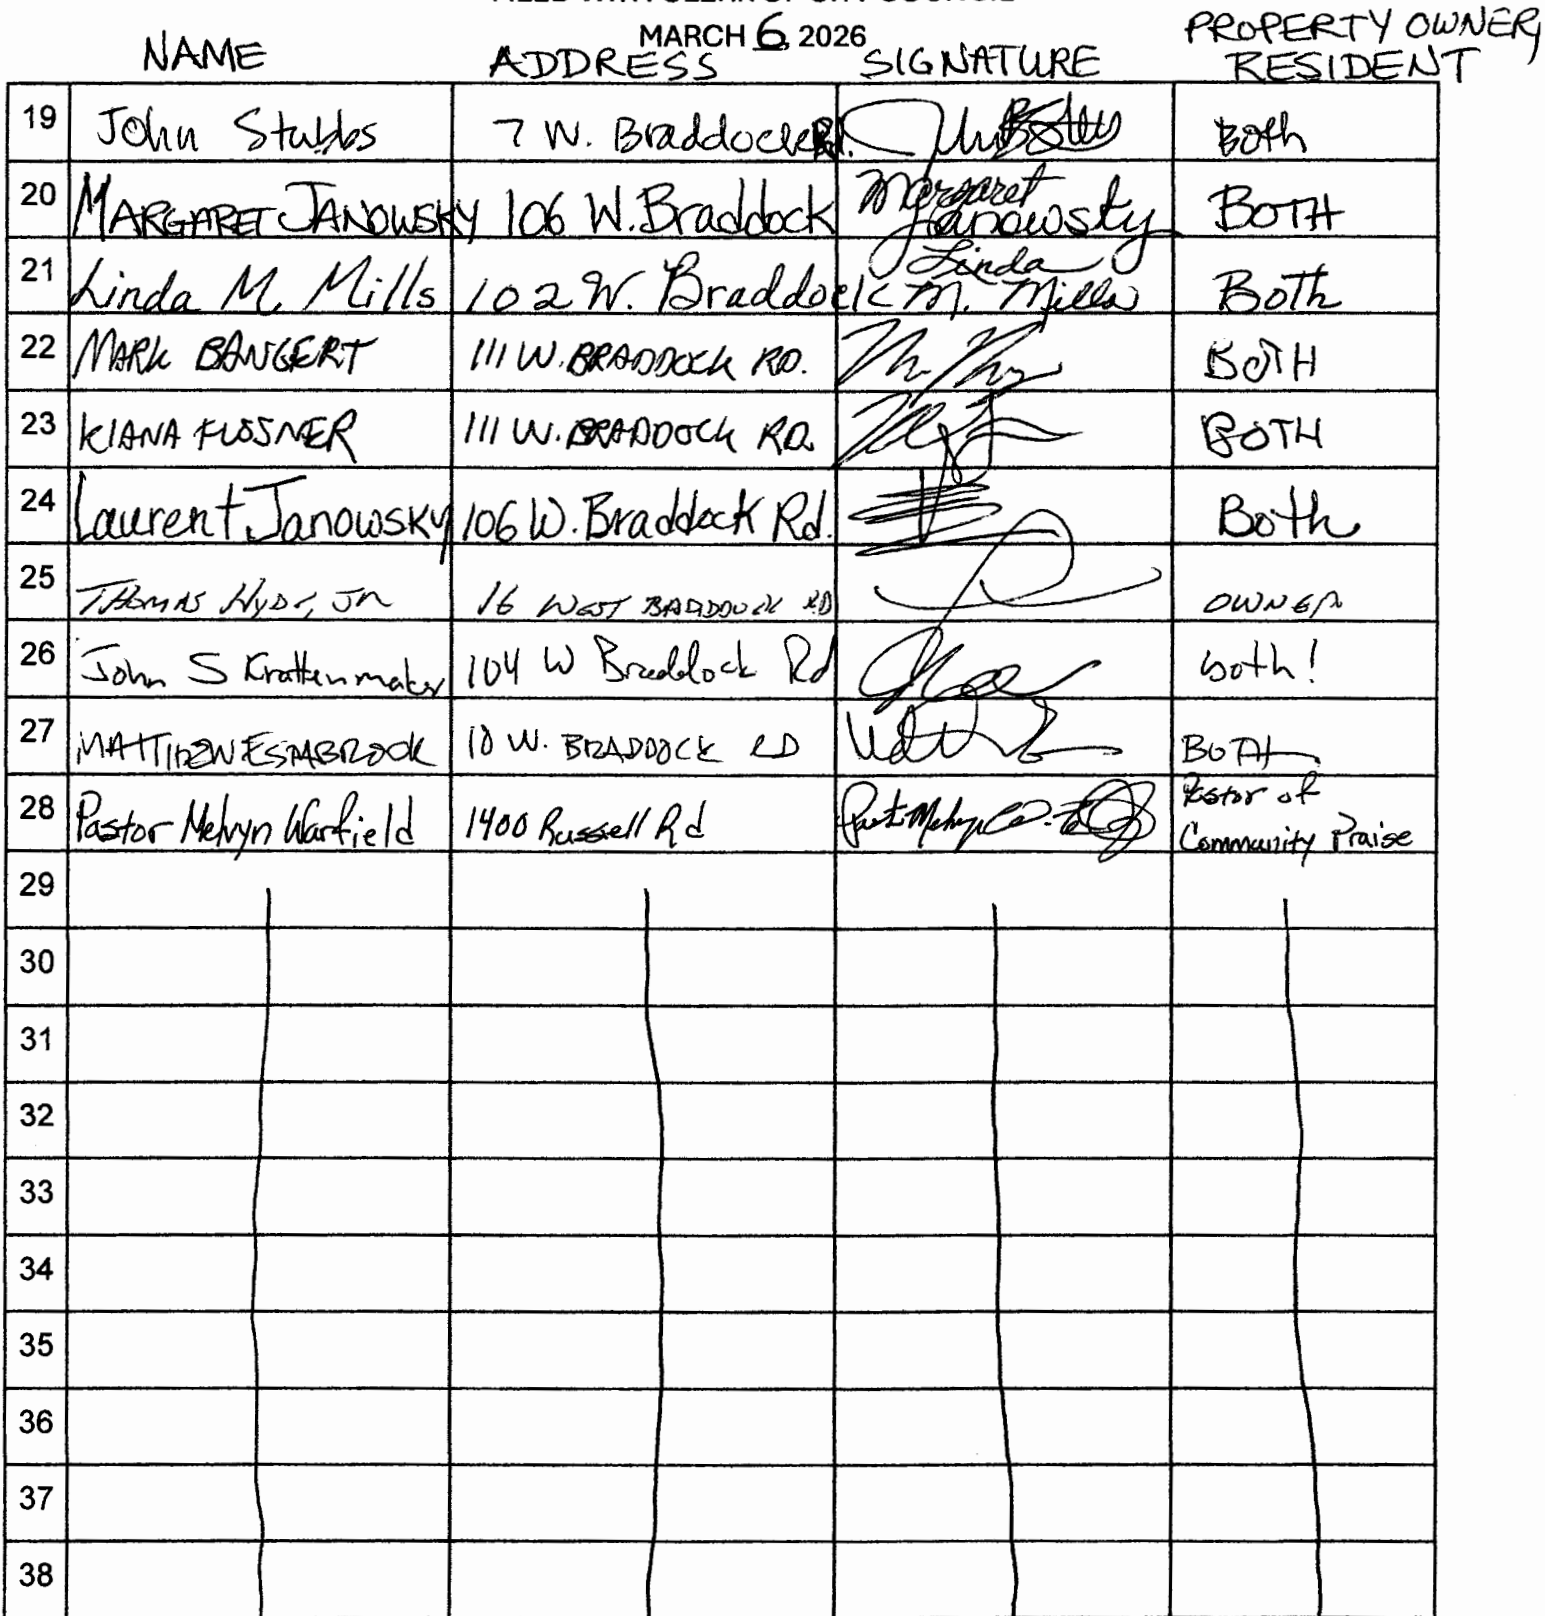 MARCH 6, 2026
NAME ADDRESS SIGNATURE PROPERTY OWNER, RESIDENT
19 John Stubbs 7 W. Braddock Rd. Both
20 MARGARET JANOWSKY 106 W. Braddock Margaret Janowsky BOTH
21 Linda M. Mills 102 W. Braddock Linda M. Mills Both
22 MARK BANGERT 111 W. BRADDOCK RD. BOTH
23 KIANA 111 W. BRADDOCK RD. BOTH
24 Laurent Janowsky 106 W. Braddock Rd. Both
25 THOMAS HYDE, JR 16 WEST BRADDOCK RD OWNER
26 John S Krattenmaker 104 W Braddock Rd both!
27 MATTHEW ESTABROOK 10 W. BRADDOCK RD BOTH
28 Pastor Melvyn Warfield 1400 Russell Rd Pastor of Community Praise
29
30
31
32
33
34
35
36
37
38